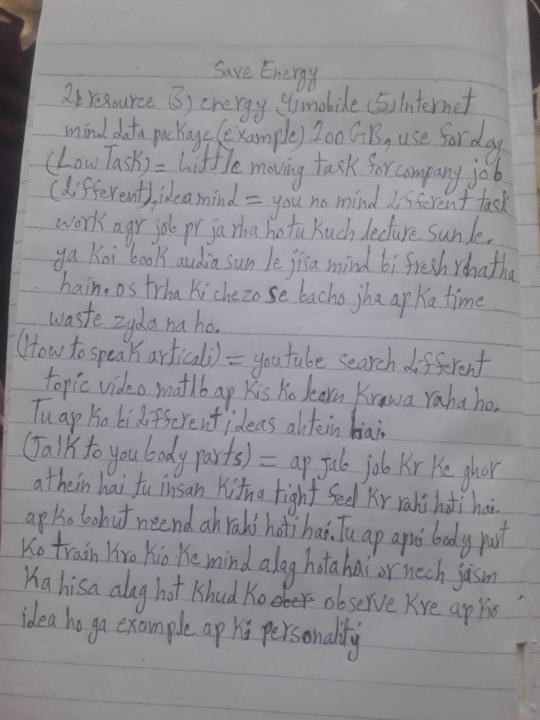 Save Energy
2) resource (3) energy 4) mobile (5) Internet
mind data package (example) 200 GB, use for day
(Low Task) = Little moving task for company job
(different), idea mind = you no mind different task
work agr job pr ja rha ho tu kuch lecture sun le.
ya koi book audia sun le jisa mind bi fresh rhatha
hain. os trha ki chezo se bacho jha ap ka time
waste zyda na ho.
(How to speak articali) = youtube search different
topic video matlb ap kis ko learn krawa raha ho.
Tu ap ko bi different, ideas ahtein hai.
(Talk to you body parts) = ap jab job kr ke ghar
athein hai tu insan kitna tight feel kr rahi hoti hai.
ap ko bohut neend ah rahi hoti hai. Tu ap apni body part
ko train kro kio ke mind alag hota hai or nech jism
ka hisa alag hot khud ko observe kre ap ko
idea ho ga example ap ki personality